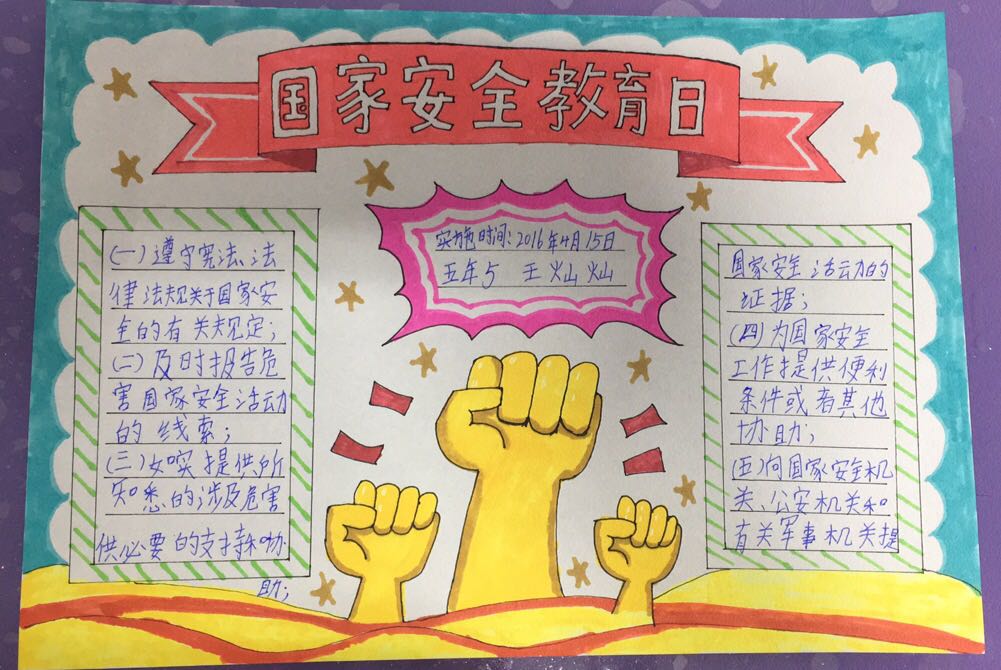 国家安全教育日
实施时间:2016年4月15日
五年5 王灿灿
(一)遵守宪法、法
律法规关于国家安
全的有关规定;
(二)及时报告危
害国家安全活动
的线索;
(三)如实提供所
知悉的涉及危害
供必要的支持和协
助;
国家安全活动的
证据;
(四)为国家安全
工作提供便利
条件或者其他
协助;
(五)向国家安全机
关、公安机关和
有关军事机关提